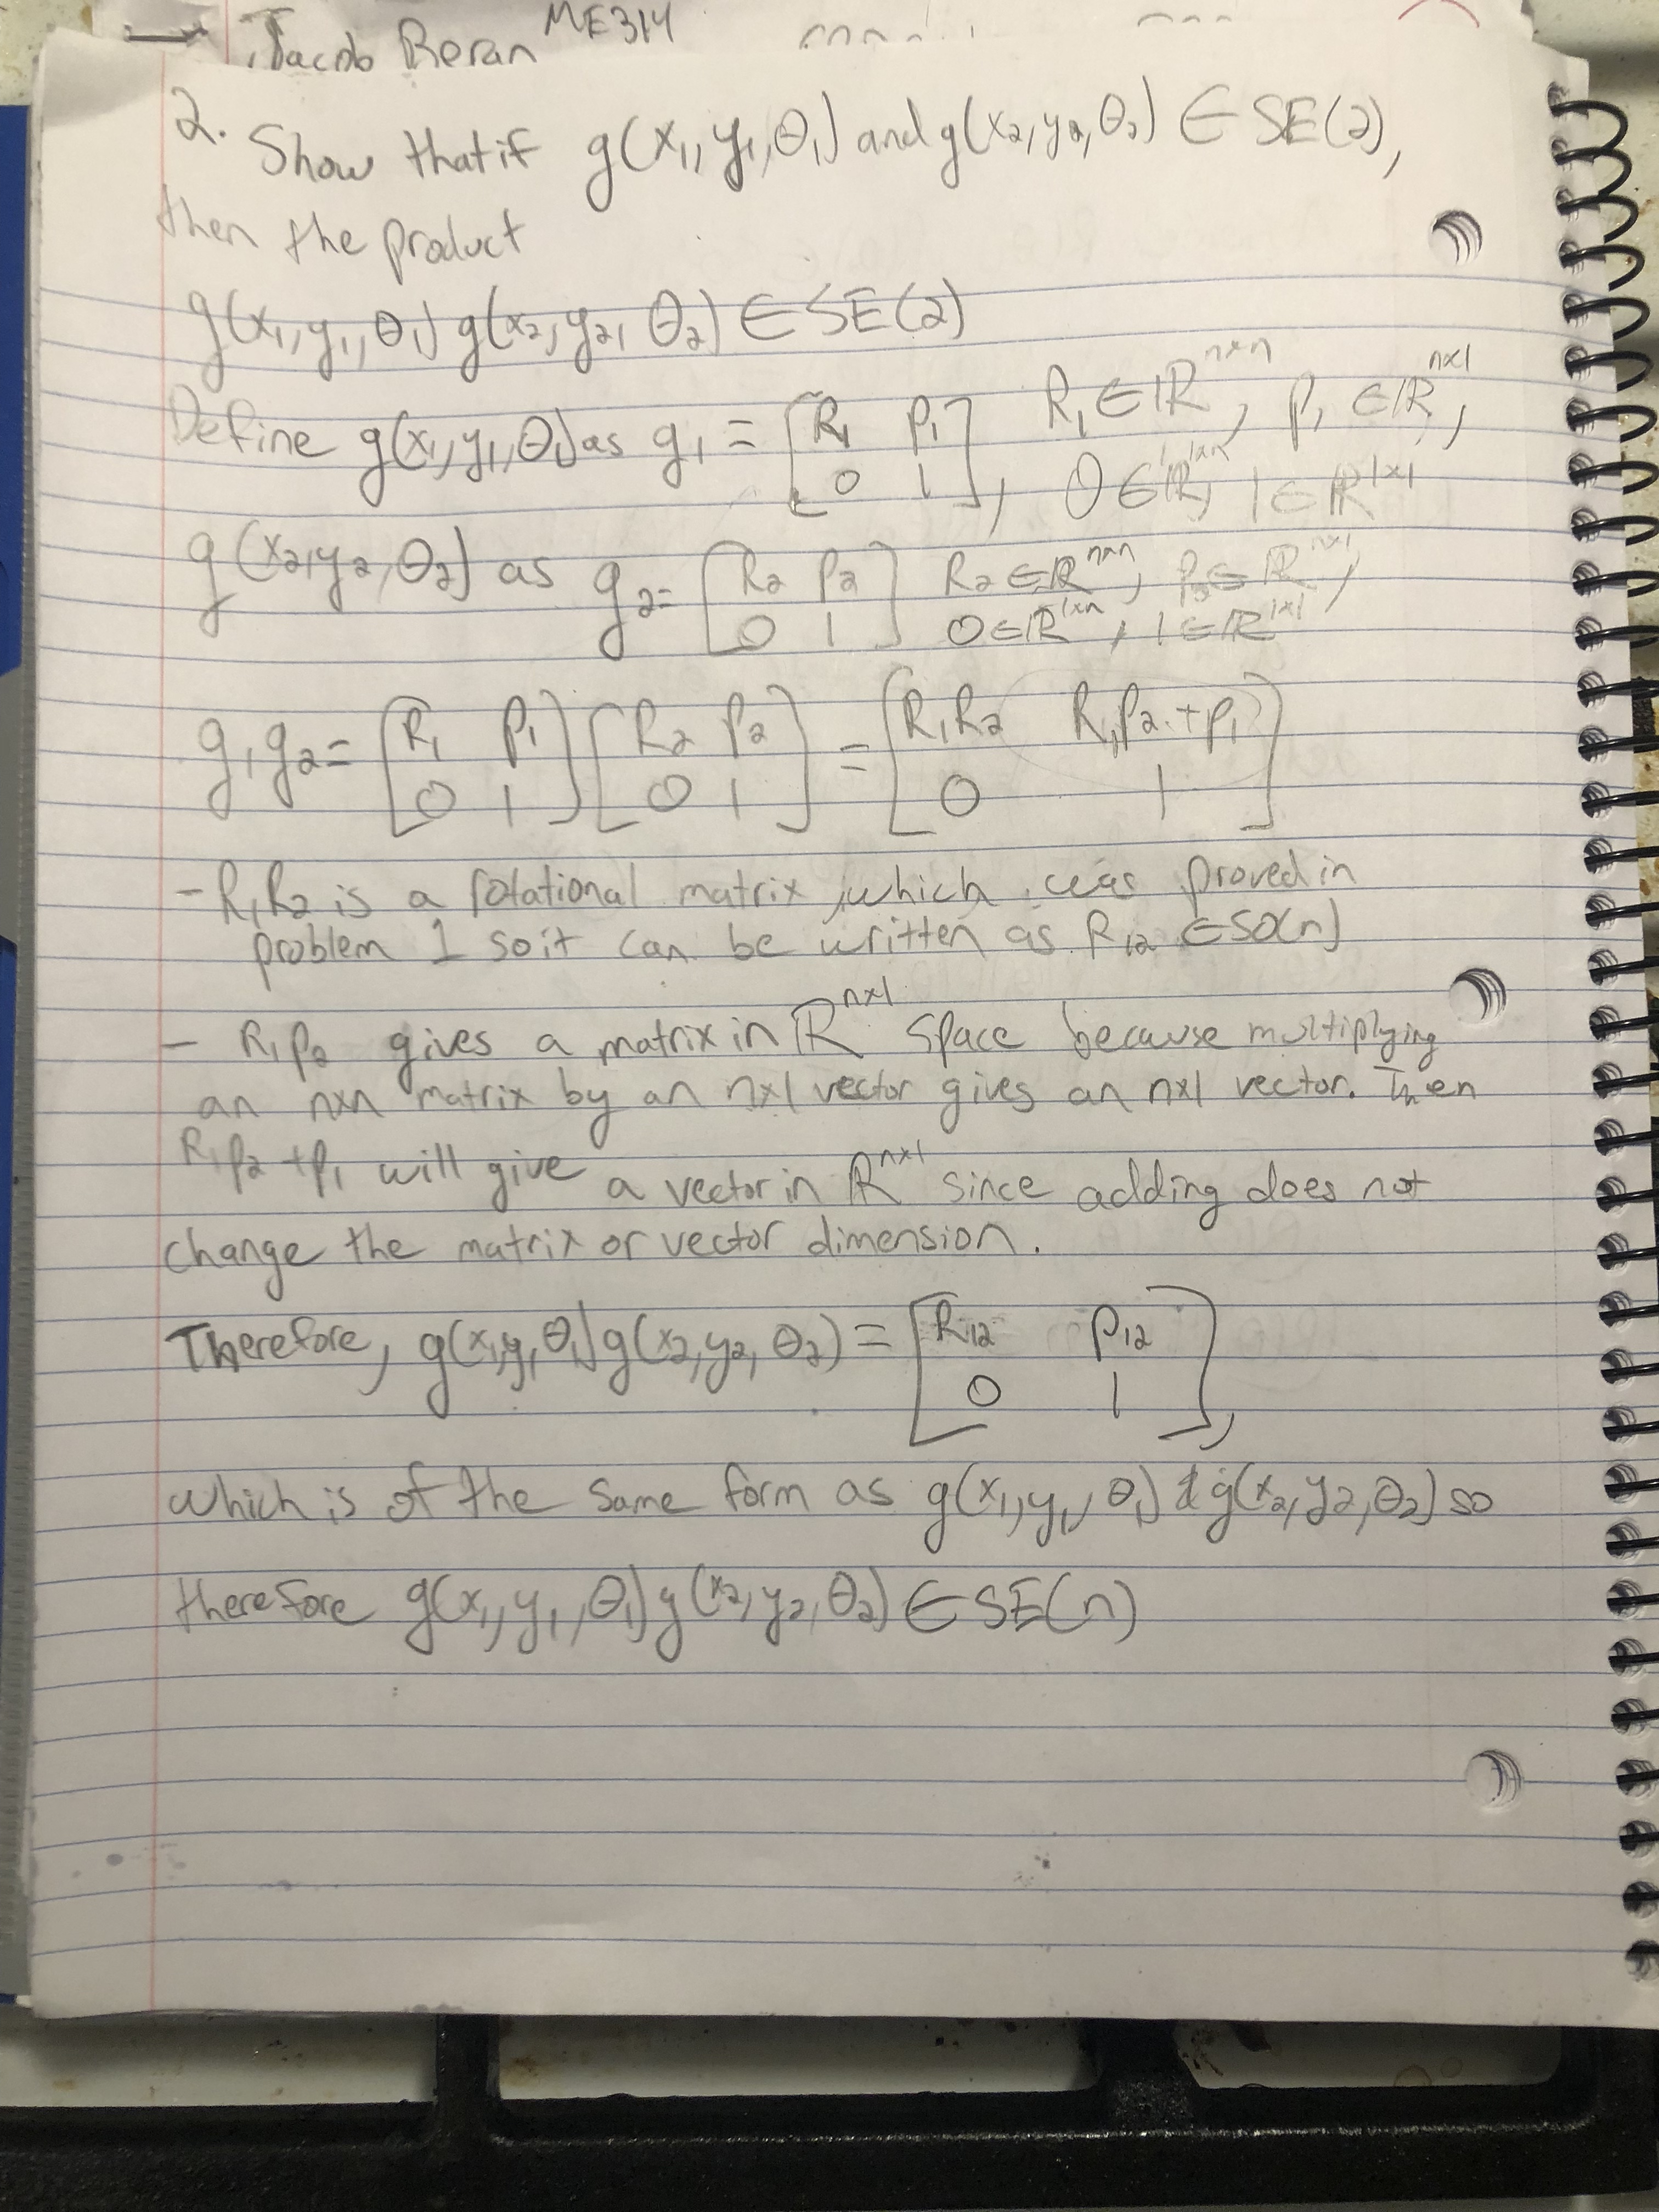 Jacob Beran ME314
2. Show that if g(x₁, y₁, θ₁) and g(x₂, y₂, θ₂) ∈ SE(2),
then the product
g(x₁, y₁, θ₁) g(x₂, y₂, θ₂) ∈ SE(2)
Define g(x₁, y₁, θ₁) as g₁ = [R₁ p₁; 0 1], R₁ ∈ ℝⁿˣⁿ, p₁ ∈ ℝⁿˣ¹, 0 ∈ ℝ¹ˣⁿ, 1 ∈ ℝ¹ˣ¹
g(x₂, y₂, θ₂) as g₂ = [R₂ p₂; 0 1] R₂ ∈ ℝⁿˣⁿ, p₂ ∈ ℝⁿˣ¹, 0 ∈ ℝ¹ˣⁿ, 1 ∈ ℝ¹ˣ¹
g₁g₂ = [R₁ p₁; 0 1] [R₂ p₂; 0 1] = [R₁R₂ R₁p₂ + p₁; 0 1]
- R₁R₂ is a rotational matrix, which was proved in
problem 1 so it can be written as R₁₂ ∈ SO(n)
- R₁p₂ gives a matrix in ℝⁿˣ¹ space because multiplying
an nxn matrix by an nx1 vector gives an nx1 vector. Then
R₁p₂ + p₁ will give a vector in ℝⁿˣ¹ since adding does not
change the matrix or vector dimension.
Therefore, g(x₁, y₁, θ₁) g(x₂, y₂, θ₂) = [R₁₂ p₁₂; 0 1],
which is of the same form as g(x₁, y₁, θ₁) & g(x₂, y₂, θ₂) so
therefore g(x₁, y₁, θ₁) g(x₂, y₂, θ₂) ∈ SE(n)